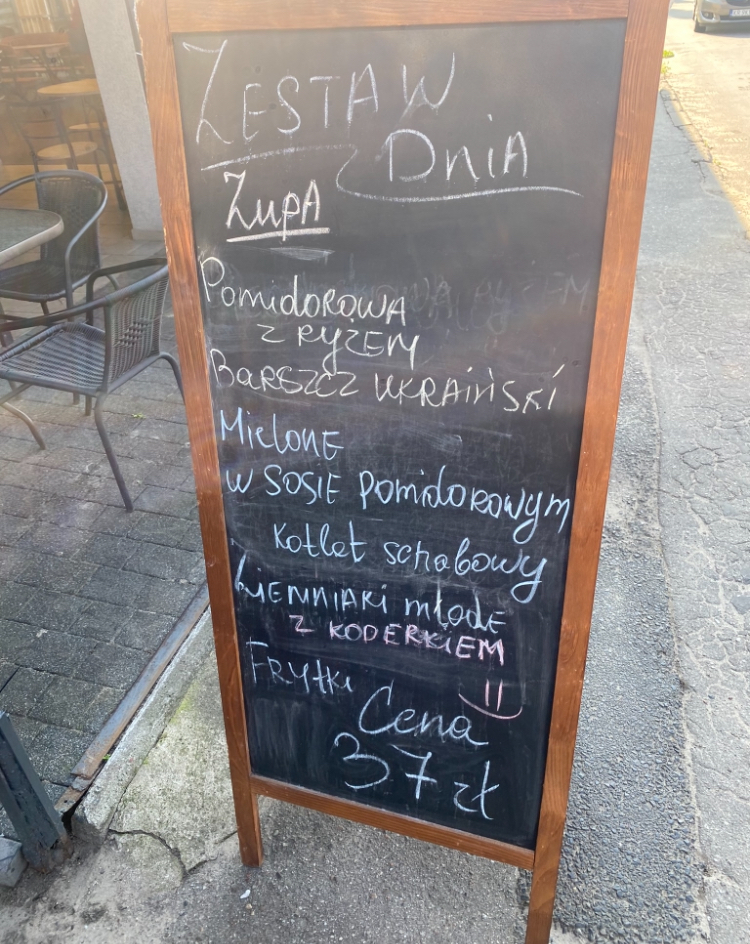 ZESTAW
DniA
ZupA
PomidorowA
Z RYŻEM
BARSZCZ UKRAIŃSKI
MielonE
w SOSIE pomidorowym
Kotlet schabowy
ZIEMNIAKI młode
Z KODERKIEM
FRytki
Cena
37 zł